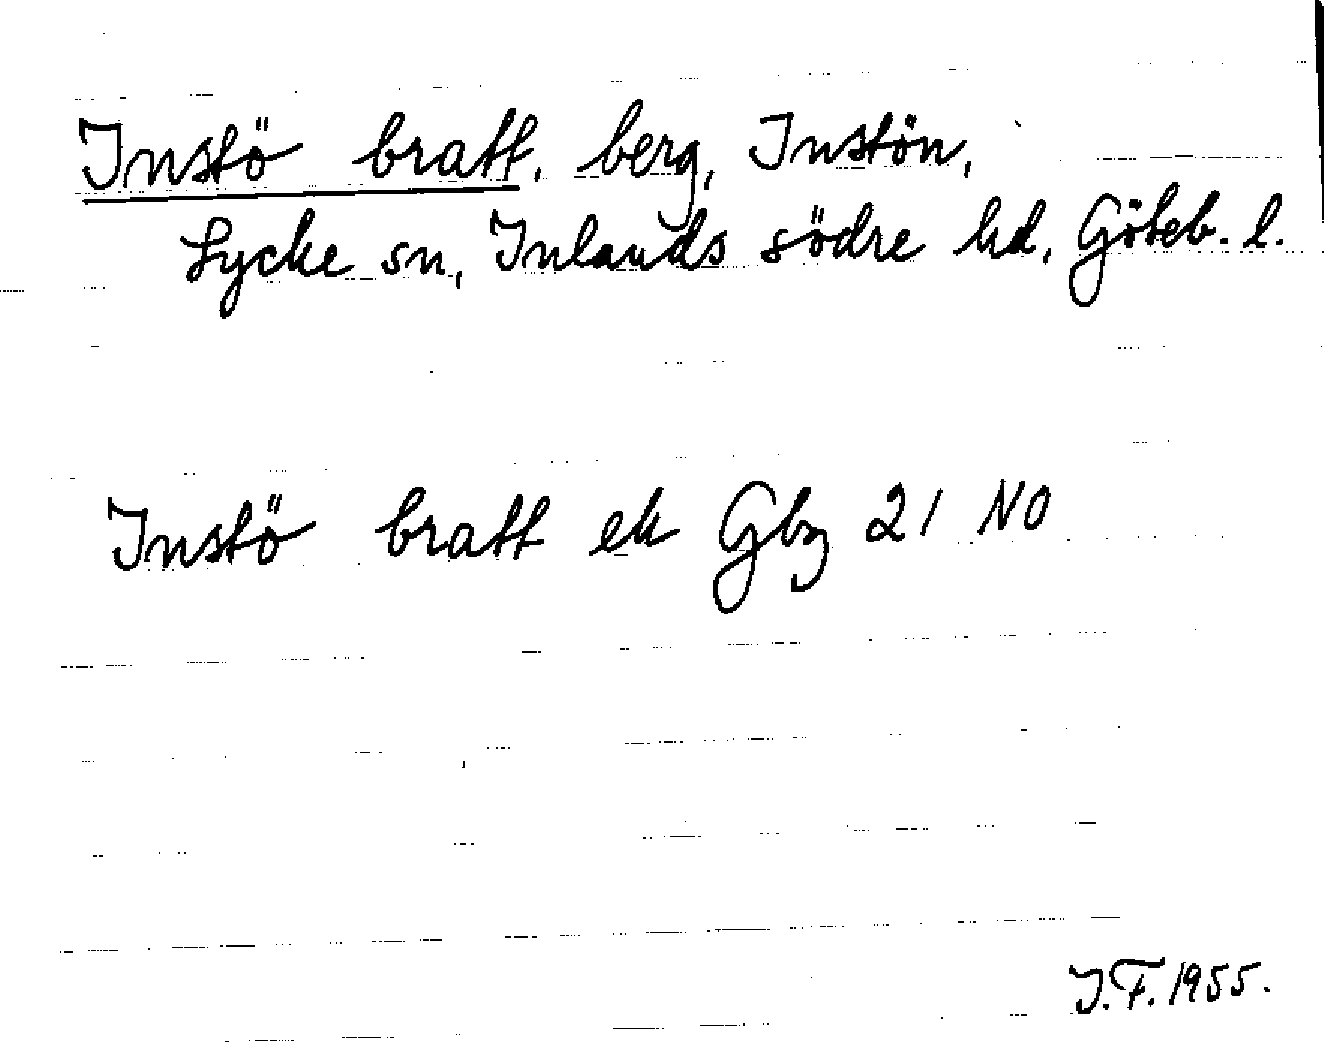 Instö bratt, berg, Instön,
Lycke sn, Inlands södre hd, Göteb. l.
Instö bratt ek Gbg 21 NO
I.F. 1955.